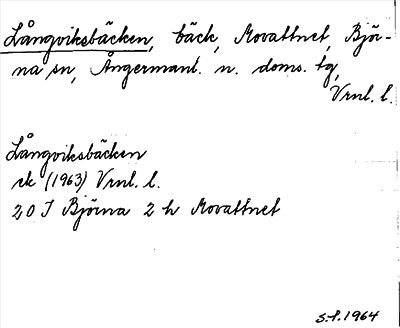 Långviksbäcken, bäck, Movattnet, Björ-
na sn, Ångermanl. n. doms. tg,
Vrnl. l.
Långviksbäcken
ek (1963) Vrnl. l.
20 I Björna 2 h Movattnet
S.P. 1964